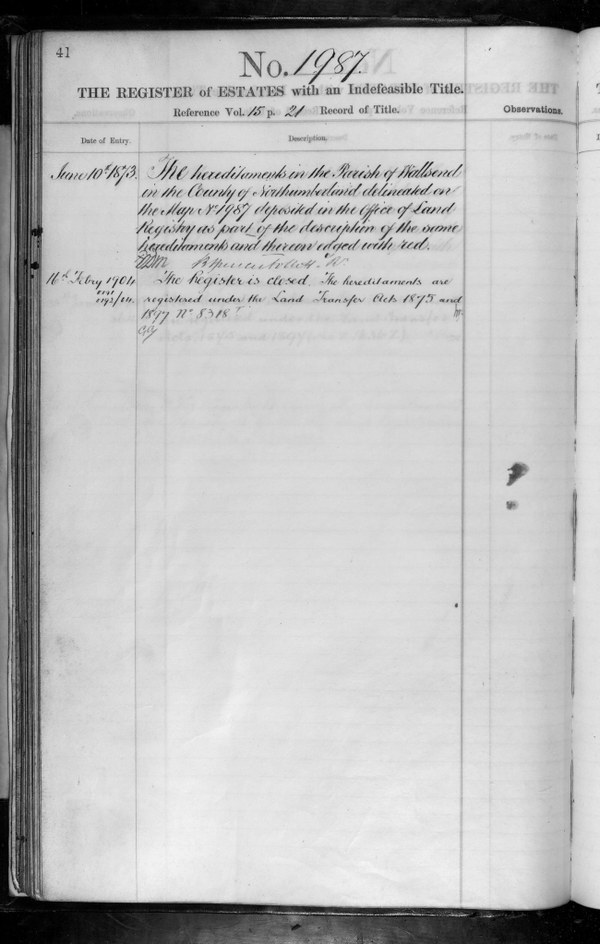 41
No. 1987.
THE REGISTER of ESTATES with an Indefeasible Title.
Reference Vol. 15 p. 21 Record of Title.
Observations.
Date of Entry.
Description.
June 10th 1873.
The hereditaments in the Parish of Wallsend
in the County of Northumberland delineated on
the Map No 1987 deposited in the Office of Land
Registry as part of the description of the same
hereditaments and thereon edged with red.
16th Febry 1904
The Register is closed. The hereditaments are
registered under the Land Transfer Acts 1875 and
1897 No 8318